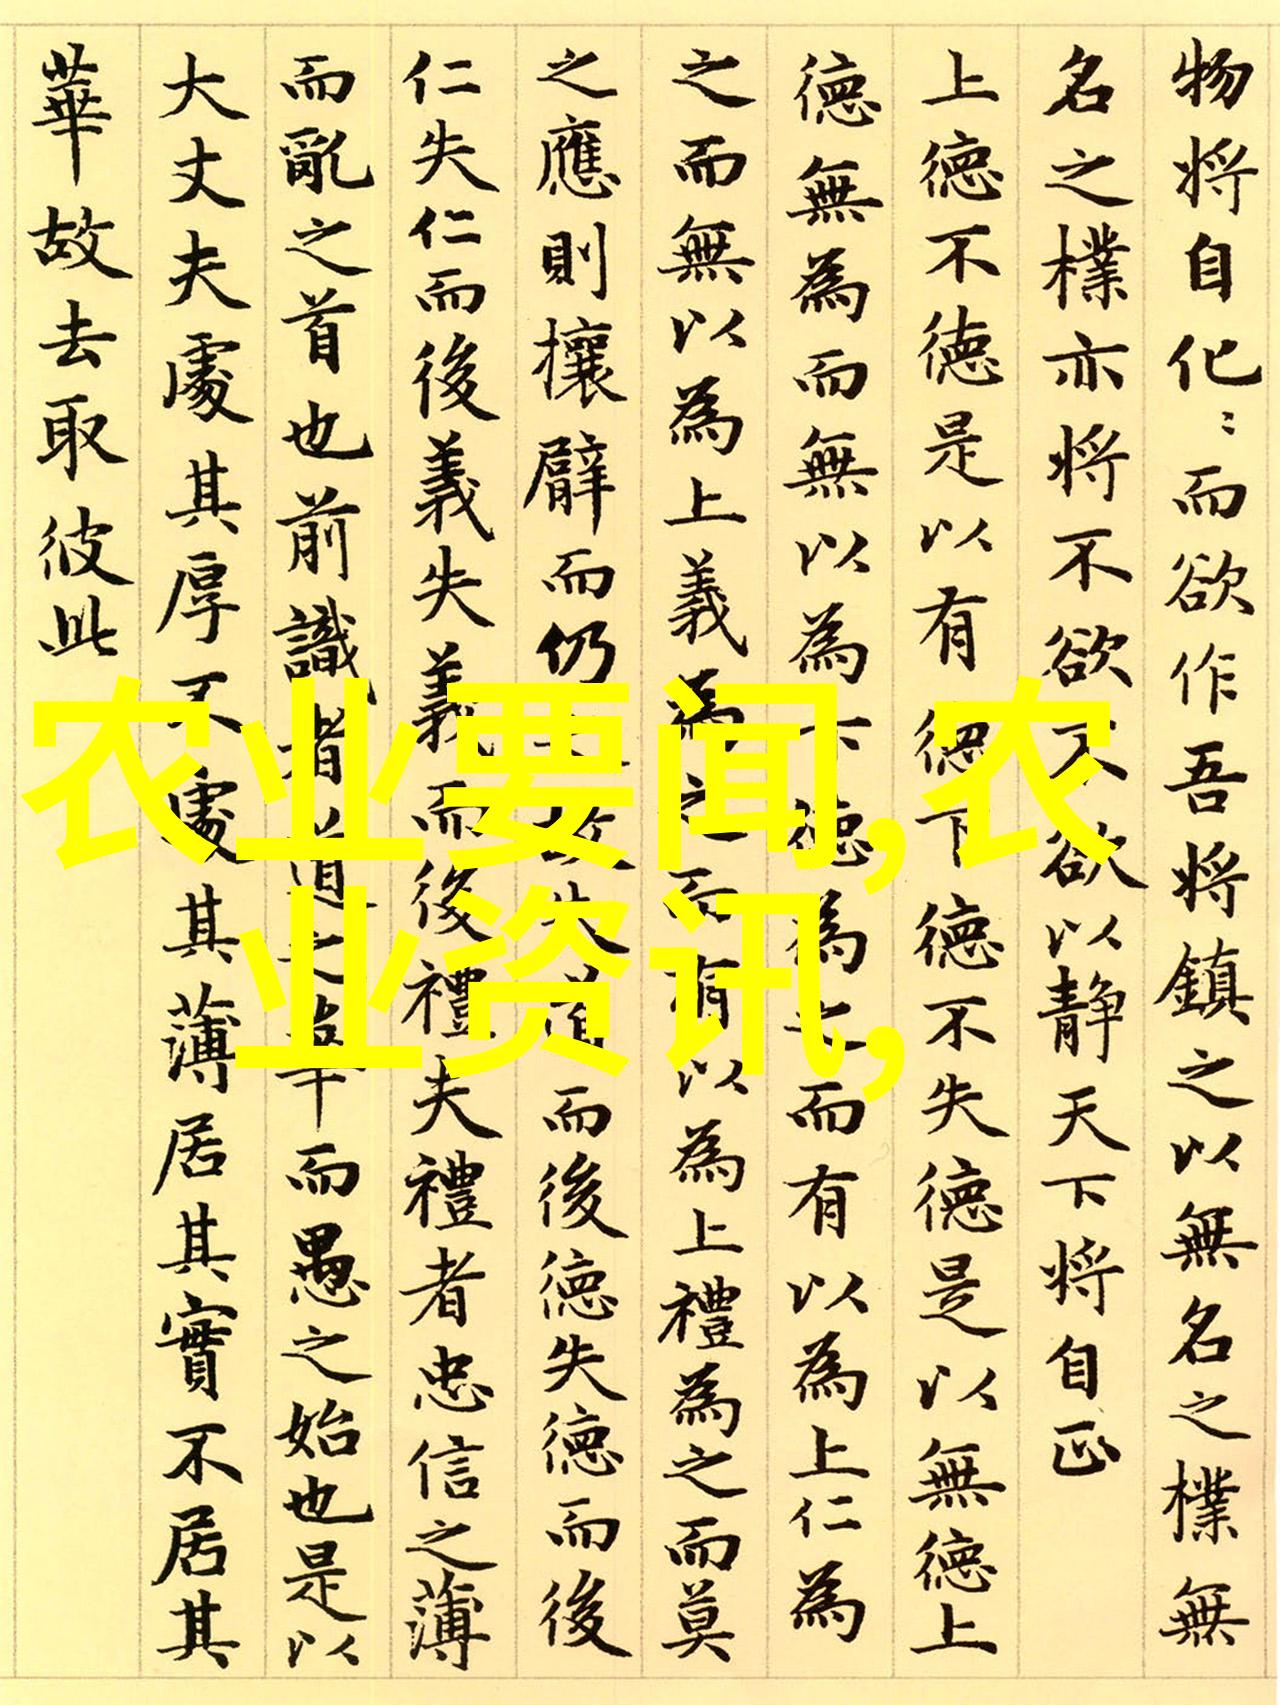 物将自化〻而欲作吾将鎮之以無名之樸無
名之樸亦将不欲不欲以静天下将自正
上德不德是以有德下德不失德是以無德上
德無為而無以為下德為之而有以為上仁為
之而無以為上義為之而有以為上禮為之而莫
之應則攘臂而仍之故失道而後德失德而後
仁失仁而後義失義而後禮夫禮者忠信之薄
而亂之首也前識者道之華而愚之始也是以
大丈夫處其厚不處其薄居其實不居其
華故去取彼此
农业要闻,农
业资讯,